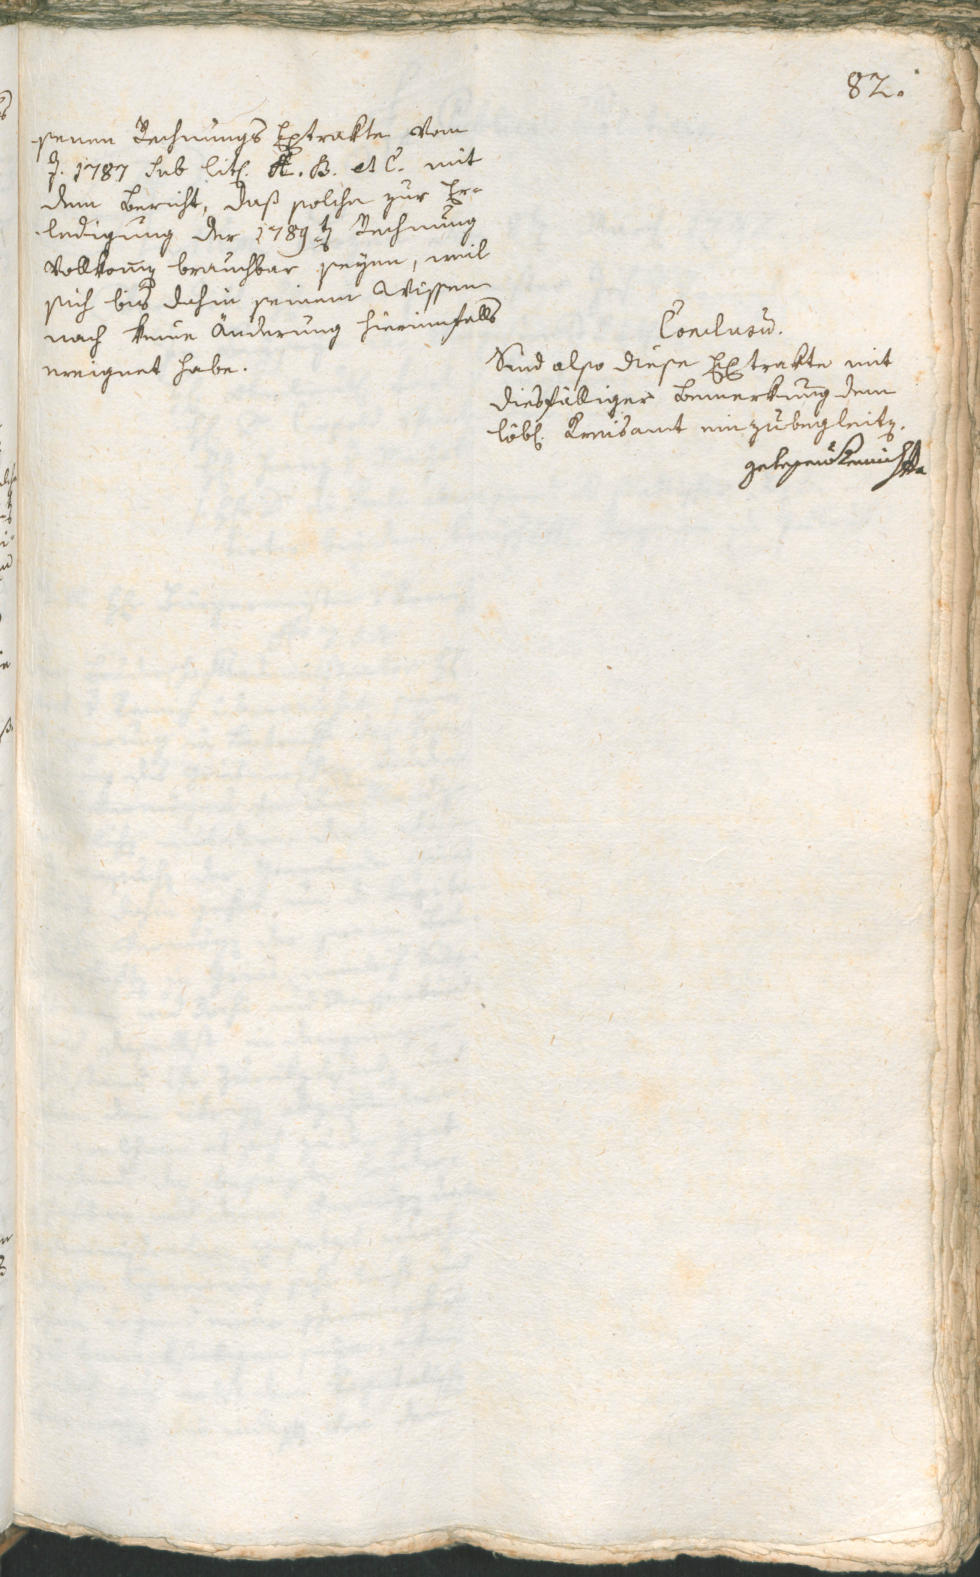 82.
senen Rechnungs Extrakte vom
J. 1787 sub lit. A. B. et C. mit
dem Bericht, daß solche zur Er-
ledigung der 1789 Rechnung
vollkom̅ brauchbar seyen, weil
sich bis dahin seinem Wissen
nach keine Änderung hierinnfalls
ereignet habe.
Conclusu.
Sind also diese Extrakte mit
diesfälliger Bemerkung dem
löbl. Kreisamt einzubegleitn.